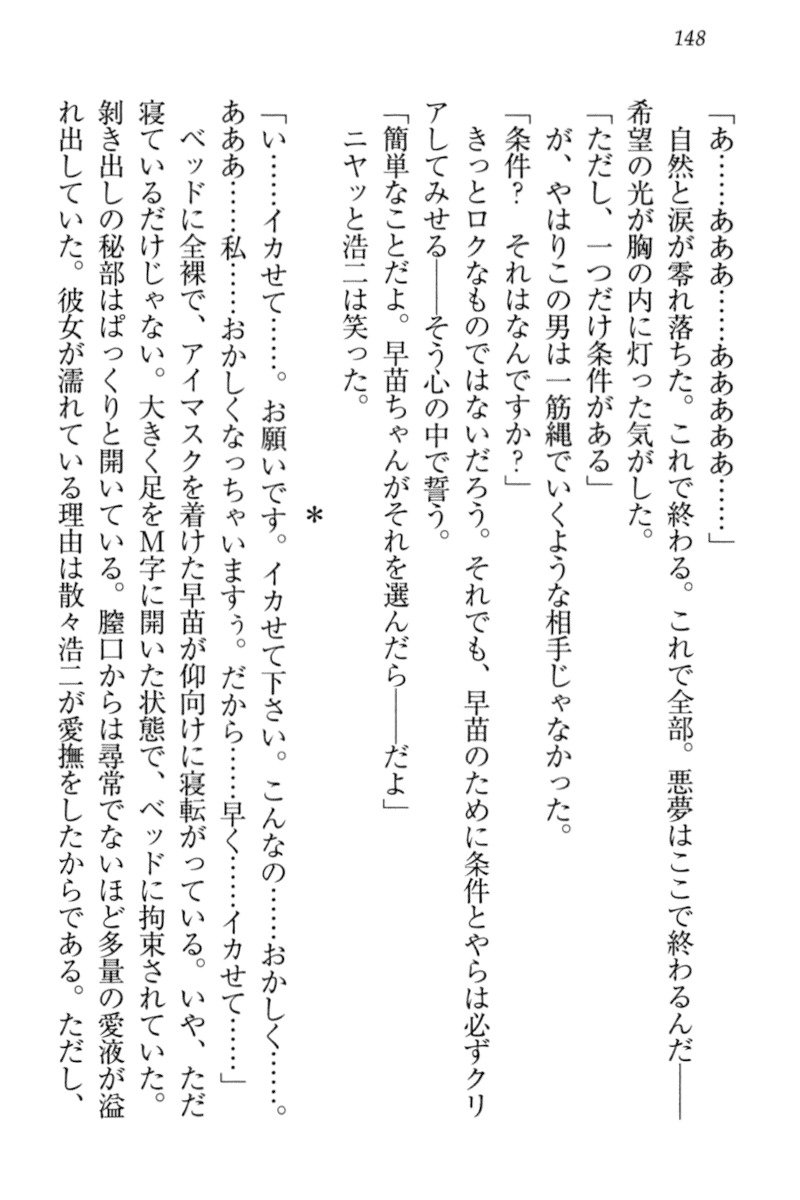 148
「あ……あああ……あああああ……」
自然と涙が零れ落ちた。これで終わる。これで全部。悪夢はここで終わるんだ――
希望の光が胸の内に灯った気がした。
「ただし、一つだけ条件がある」
が、やはりこの男は一筋縄でいくような相手じゃなかった。
「条件？　それはなんですか？」
きっとロクなものではないだろう。それでも、早苗のために条件とやらは必ずクリ
アしてみせる――そう心の中で誓う。
「簡単なことだよ。早苗ちゃんがそれを選んだら――だよ」
ニヤッと浩二は笑った。
＊
「い……イカせて……。お願いです。イカせて下さい。こんなの……おかしく……。
あああ……私……おかしくなっちゃいますぅ。だから……早く……イカせて……」
ベッドに全裸で、アイマスクを着けた早苗が仰向けに寝転がっている。いや、ただ
寝ているだけじゃない。大きく足をＭ字に開いた状態で、ベッドに拘束されていた。
剝き出しの秘部はぱっくりと開いている。膣口からは尋常でないほど多量の愛液が溢
れ出していた。彼女が濡れている理由は散々浩二が愛撫をしたからである。ただし、